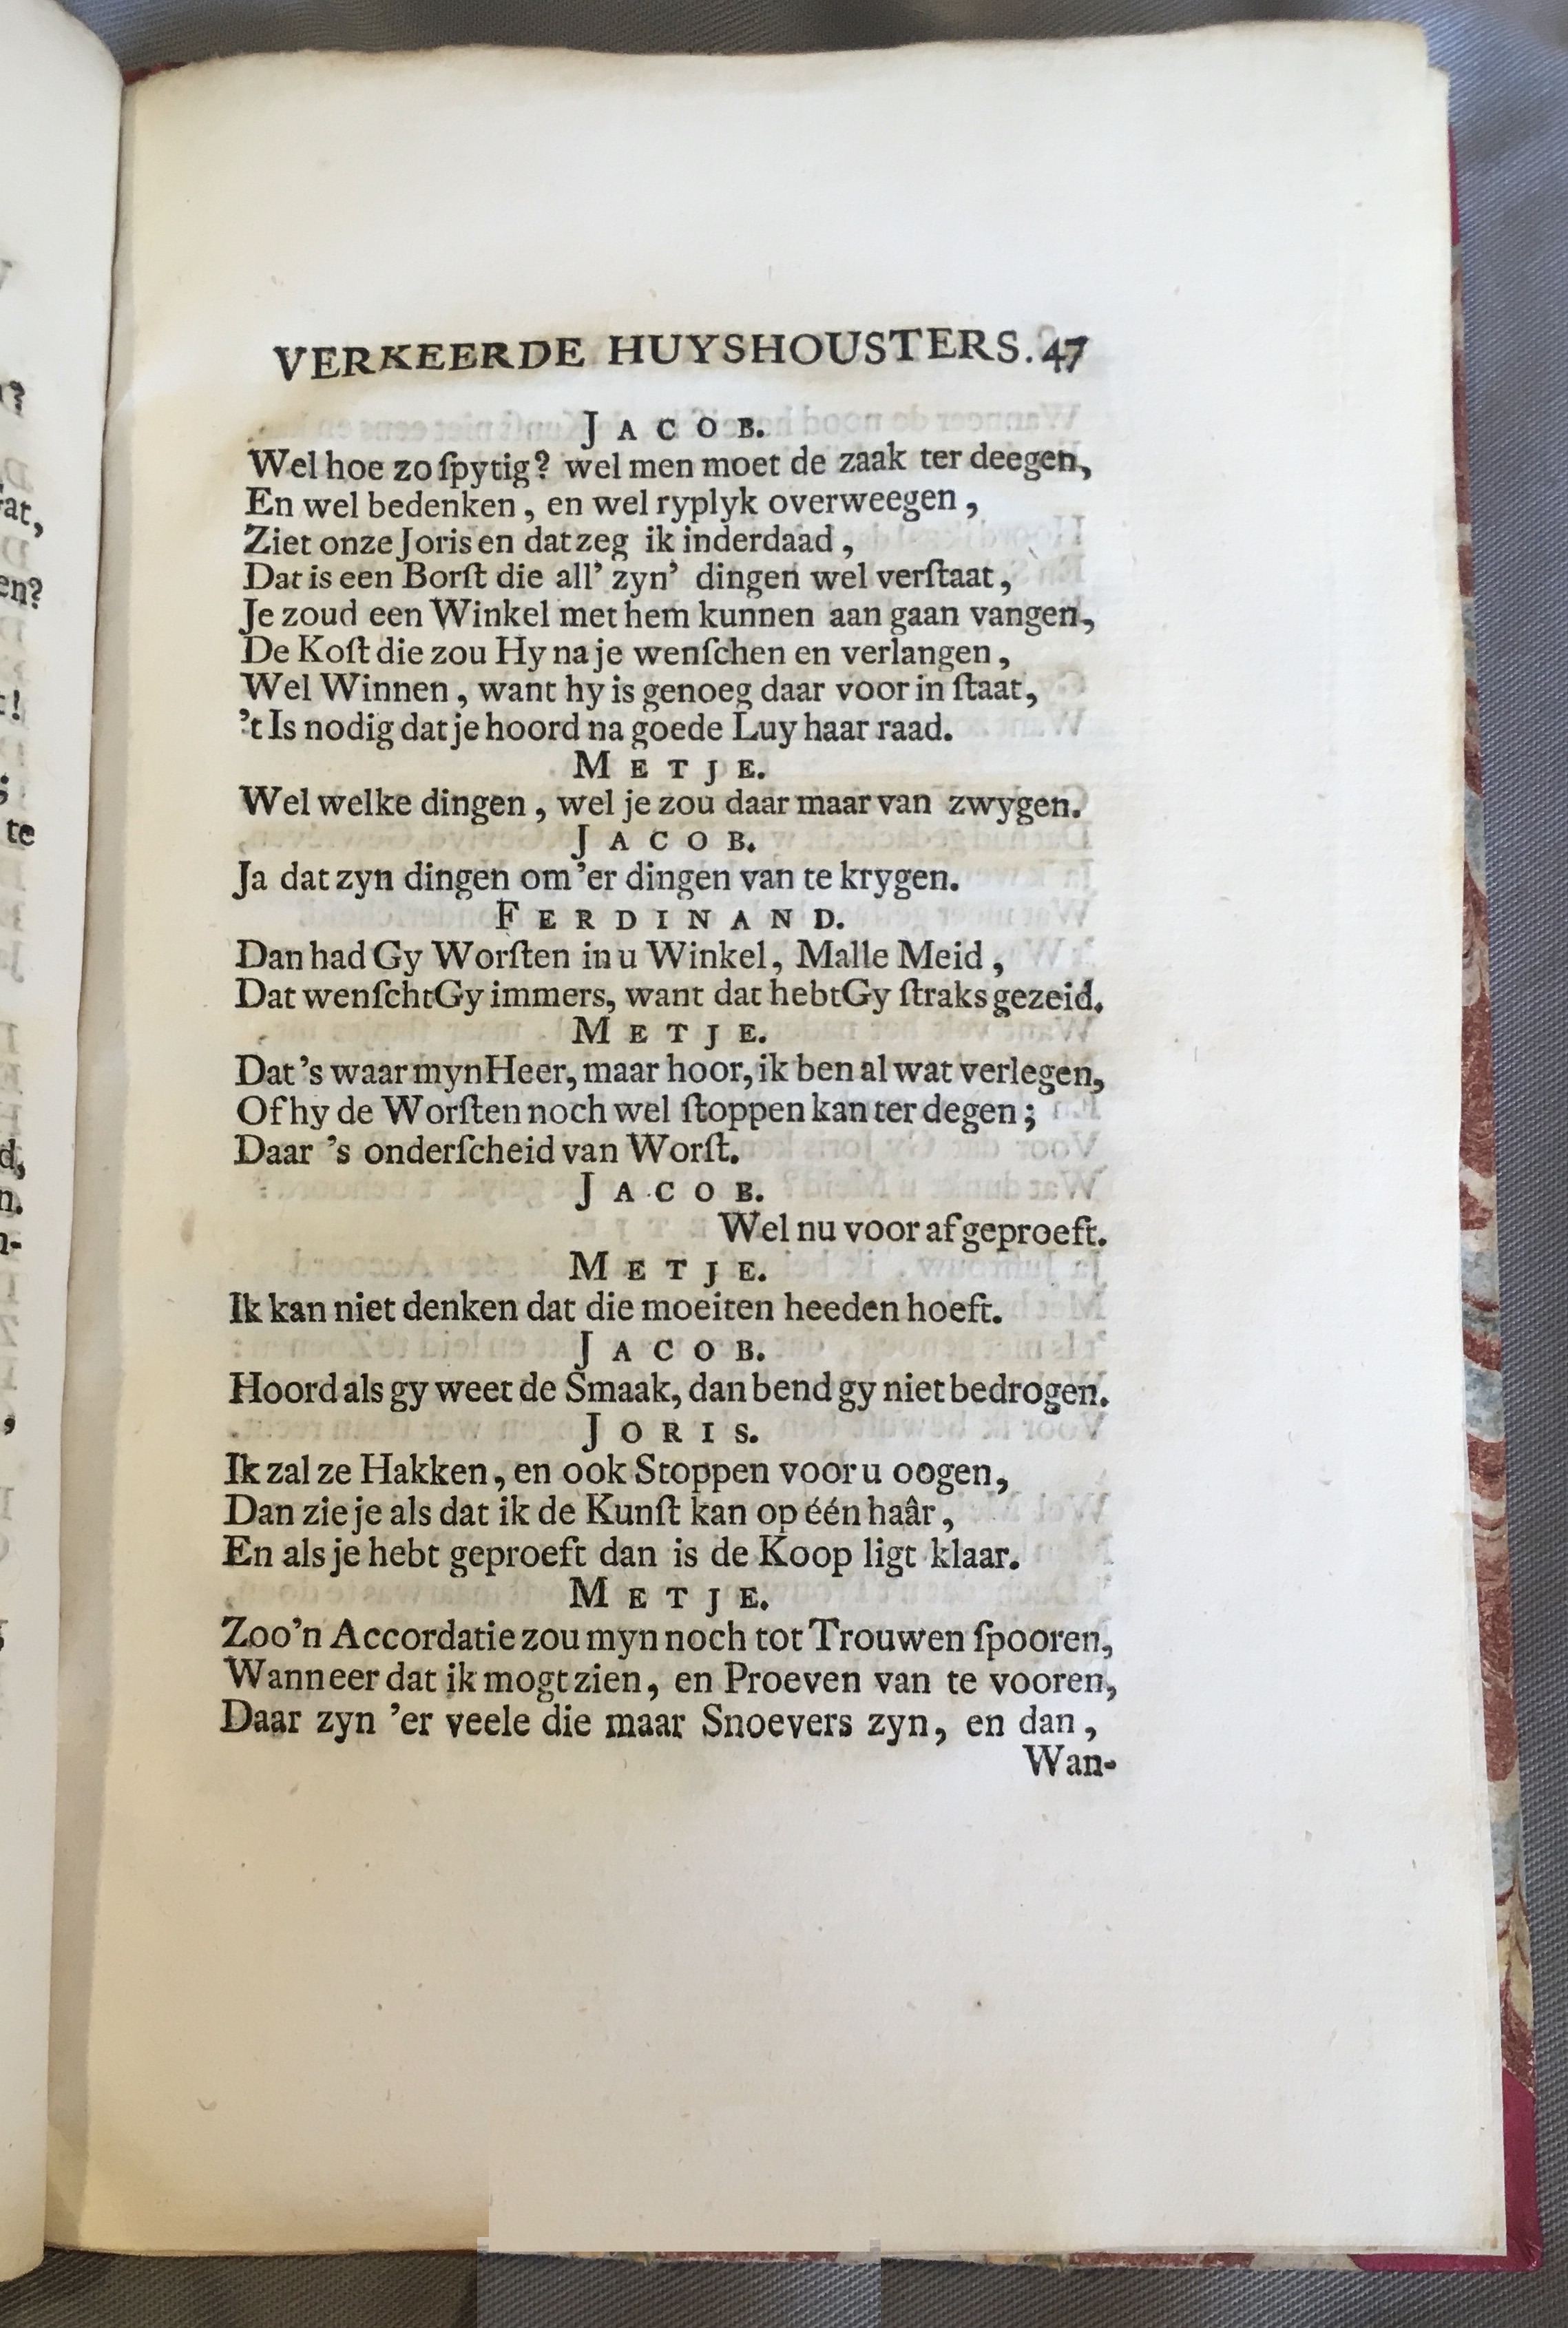 VERKEERDE HUYSHOUSTERS. 47
JACOB.
Wel hoe zo ſpytig? wel men moet de zaak ter deegen,
En wel bedenken, en wel ryplyk overweegen,
Ziet onze Joris en dat zeg ik inderdaad,
Dat is een Borſt die all' zyn' dingen wel verſtaat,
Je zoud een Winkel met hem kunnen aan gaan vangen,
De Koſt die zou Hy na je wenſchen en verlangen,
Wel Winnen, want hy is genoeg daar voor in ſtaat,
't Is nodig dat je hoord na goede Luy haar raad.
METJE.
Wel welke dingen, wel je zou daar maar van zwygen.
JACOB.
Ja dat zyn dingen om 'er dingen van te krygen.
FERDINAND.
Dan had Gy Worſten in u Winkel, Malle Meid,
Dat wenſcht Gy immers, want dat hebt Gy ſtraks gezeid.
METJE.
Dat 's waar myn Heer, maar hoor, ik ben al wat verlegen,
Of hy de Worſten noch wel ſtoppen kan ter degen;
Daar 's onderſcheid van Worſt.
JACOB.
Wel nu voor af geproeft.
METJE.
Ik kan niet denken dat die moeiten heeden hoeft.
JACOB.
Hoord als gy weet de Smaak, dan bend gy niet bedrogen.
JORIS.
Ik zal ze Hakken, en ook Stoppen voor u oogen,
Dan zie je als dat ik de Kunſt kan op één haâr,
En als je hebt geproeft dan is de Koop ligt klaar.
METJE.
Zoo'n Accordatie zou myn noch tot Trouwen ſpooren,
Wanneer dat ik mogt zien, en Proeven van te vooren,
Daar zyn 'er veele die maar Snoevers zyn, en dan,
Wan-